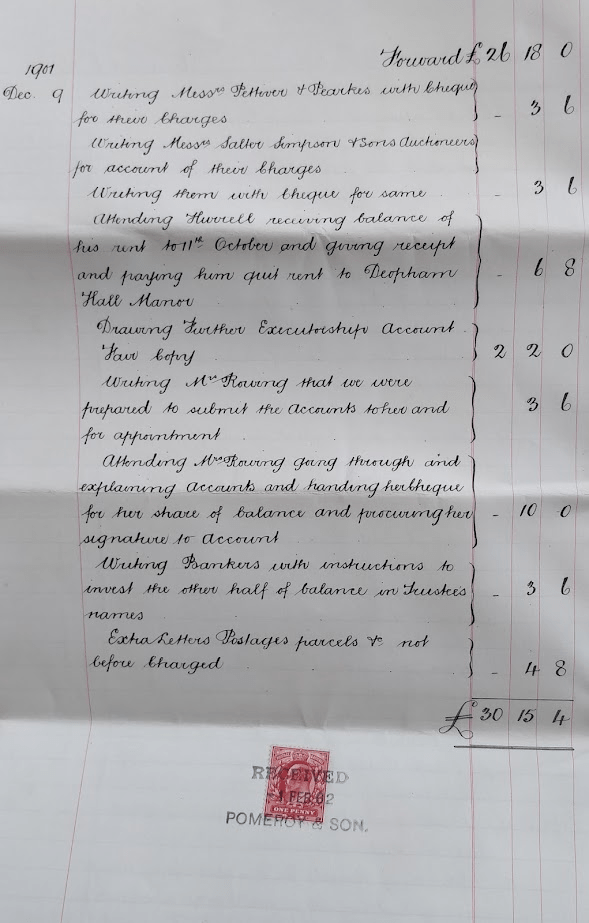 Forward £ 26 18 0
1901
Dec. 9 Writing Messrs Pettiver & Pearkes with Cheque
for their Charges - 3 6
Writing Messrs Salter Simpson & Sons Auctioneers
for account of their Charges
Writing them with Cheque for same - 3 6
Attending Hurrell receiving balance of
his rent to 11th October and giving receipt
and paying him quit rent to Deopham - 6 8
Hall Manor
Drawing Further Executorship Account
Fair Copy 2 2 0
Writing Mrs Rowing that we were
prepared to submit the Accounts to her and 3 6
for appointment
Attending Mrs Rowing going through and
explaining Accounts and handing her Cheque
for her share of balance and procuring her - 10 0
signature to Account
Writing Bankers with instructions to
invest the other half of balance in Trustees - 3 6
names
Extra Letters Postages parcels &c not
before Charged - 4 8
£ 30 15 4
RECEIVED
1 FEB. 02
ONE PENNY
POMEROY & SON.